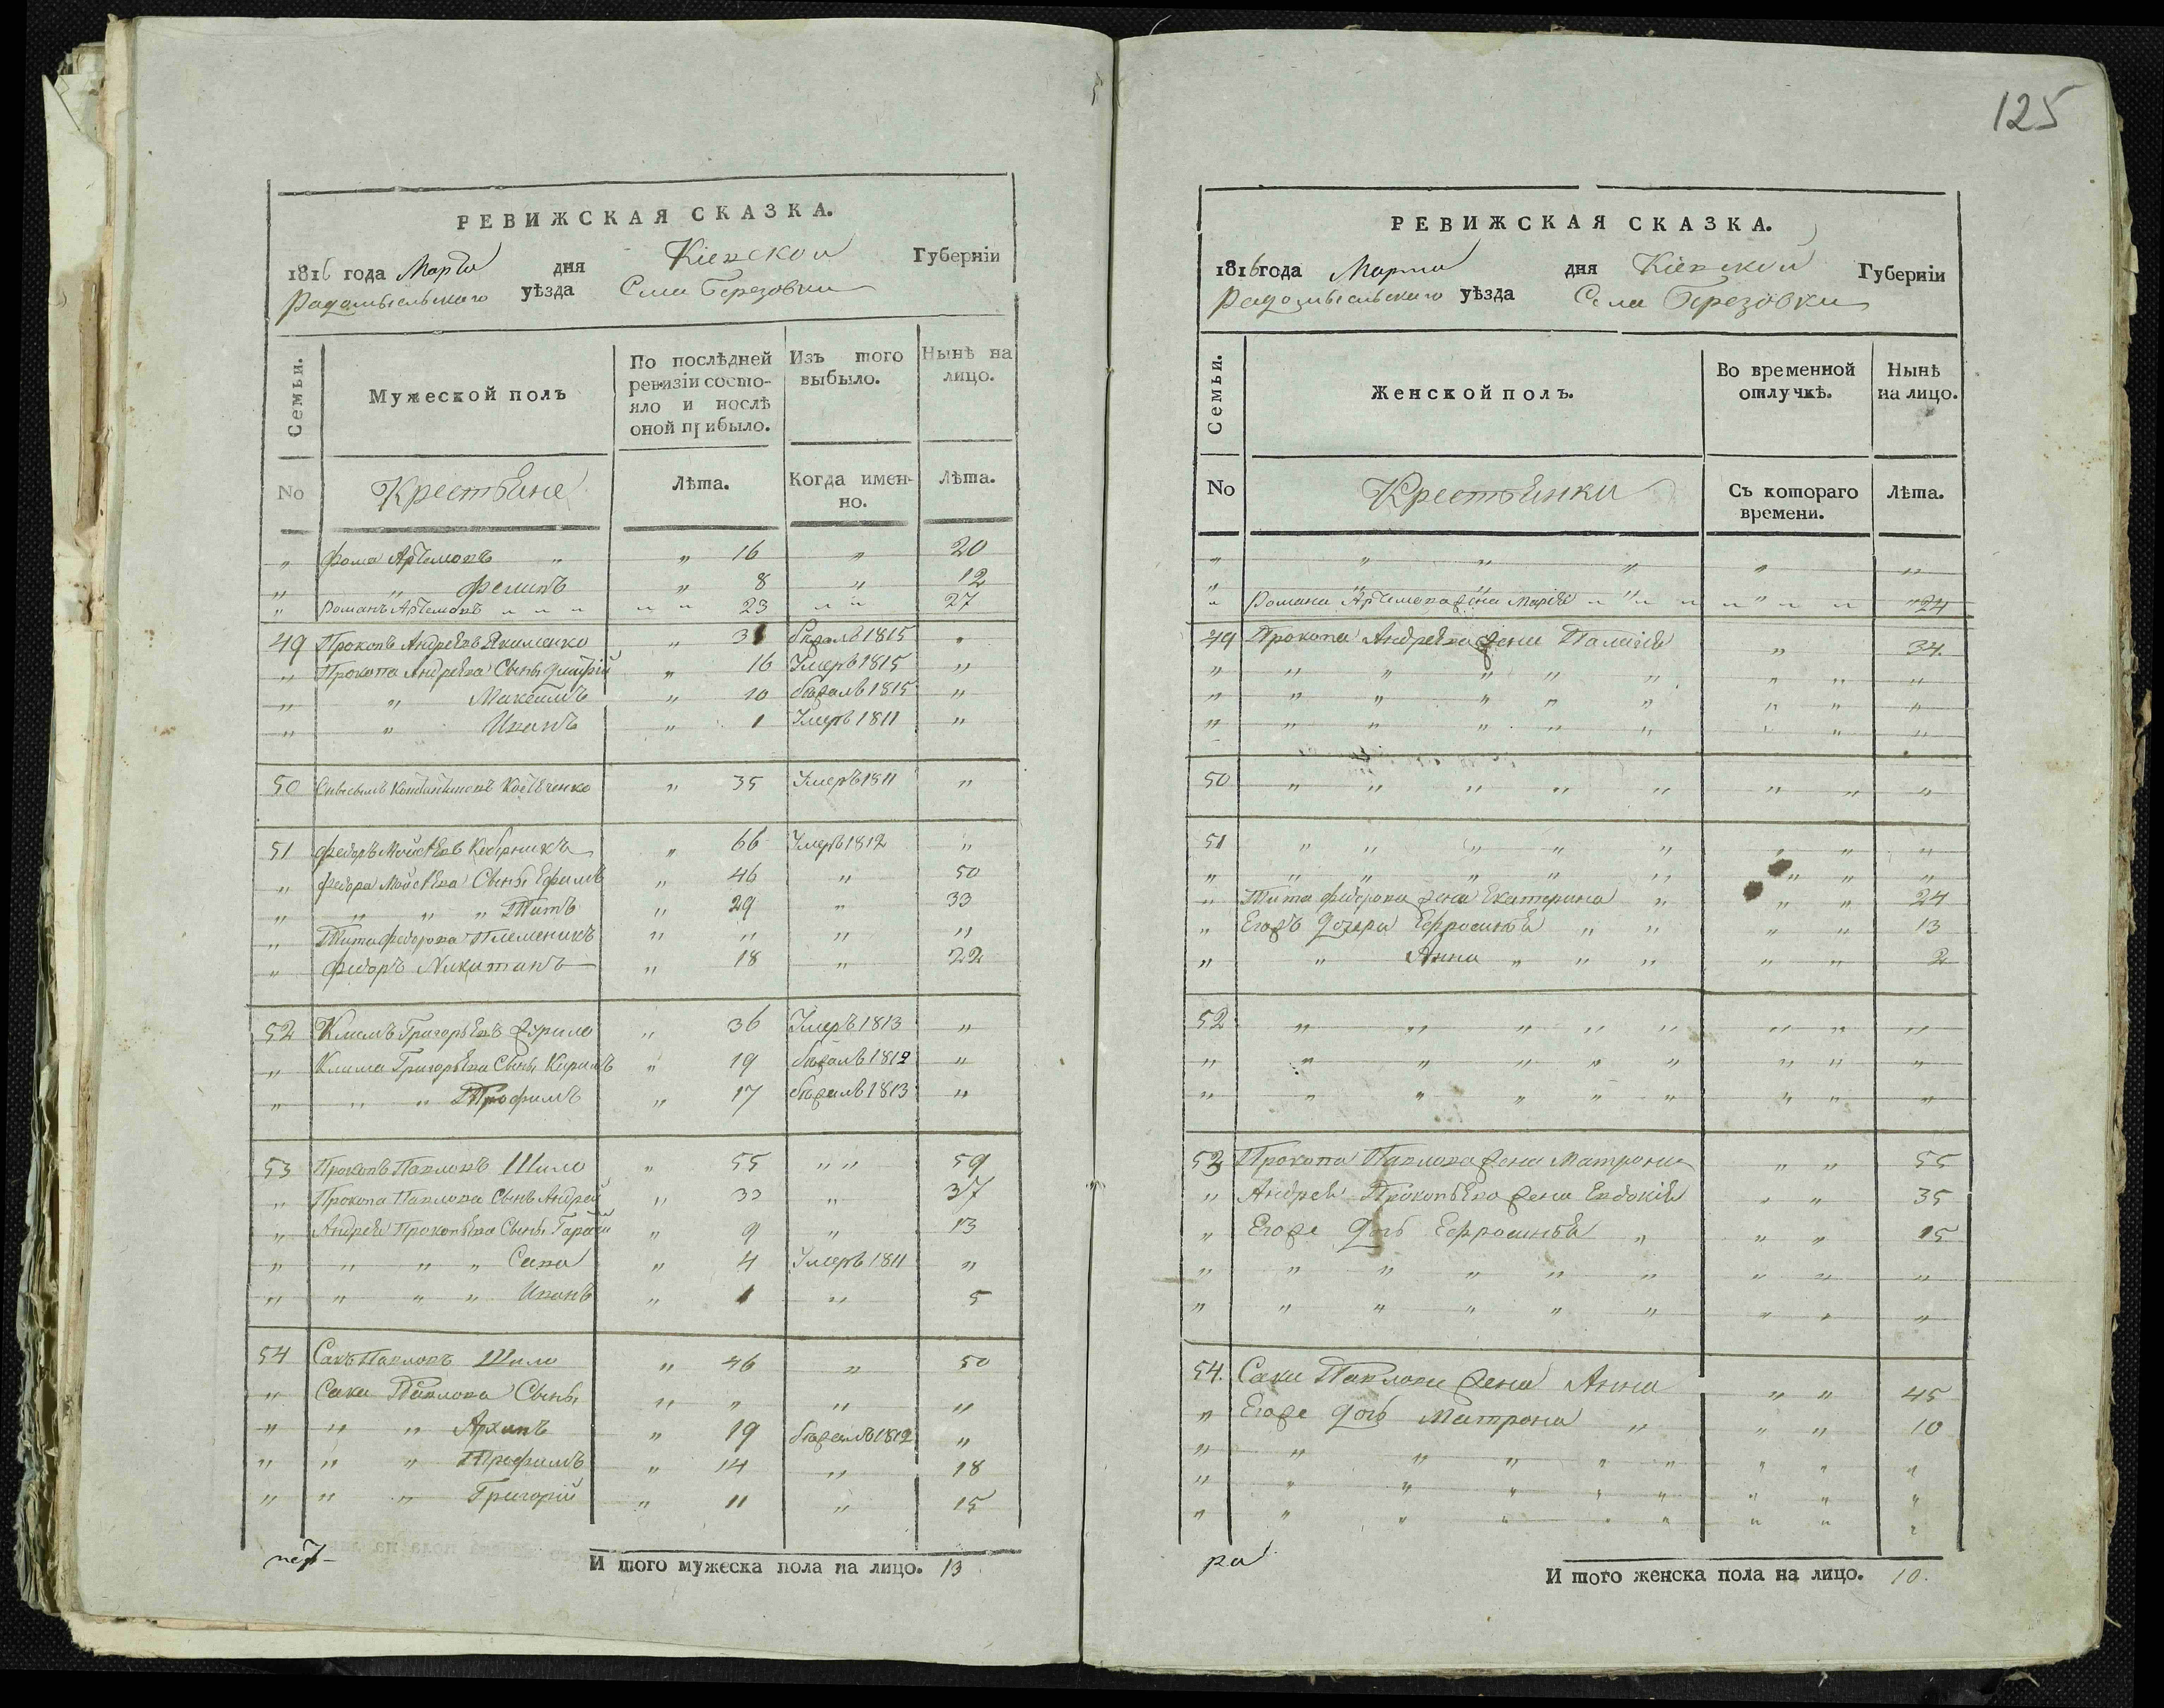 125
РЕВИЖСКАЯ СКАЗКА.
1816 года Марта дня Кіевской Губерніи
Радомысльскаго уѣзда Села Березовки
Семьи.
Мужеской полъ
По послѣдней ревизіи состояло и послѣ оной прибыло.
Изъ того выбыло.
Нынѣ на лицо.
No Крестьяне Лѣта. Когда именно. Лѣта.
„ Фома Артемовъ „ „ 16 „ 20
„ „ Филипъ „ 8 „ 12
„ Романъ Артемовъ „ „ „ „ „ 23 „ „ 27
49 Прокопъ Андреевъ Якименко „ 31 бѣжалъ 1815 „
„ Прокопа Андреева Сынъ „ 16 Умеръ 1815 „
„ „ Максимъ „ 10 бѣжалъ 1815 „
„ „ Иванъ „ 1 Умеръ 1811 „
50 Константиновъ Костѣченко „ 35 Умеръ 1811 „
51 Федоръ Мойсѣевъ „ 66 Умеръ 1812 „
„ Федора Мойсѣева Сынъ Ефимъ „ 46 „ 50
„ „ „ „ Титъ „ 29 „ 33
„ Тита Федорова Племеникъ „ „ „ „
„ Федоръ Никитинъ „ 18 „ 22
52 Климъ Григорьевъ „ 36 Умеръ 1813 „
„ Клима Григорьева Сынъ Кирилъ „ 19 бѣжалъ 1812 „
„ „ „ Трофимъ „ 17 бѣжалъ 1813 „
53 Прокопъ Павловъ Шило „ 55 „ „ 59
„ Прокопа Павлова Сынъ Андрей „ 33 „ 37
„ Андрея Прокопьева Сынъ „ 9 „ 13
„ „ „ „ Сава „ 4 Умеръ 1811 „
„ „ „ „ Иванъ „ 1 „ 5
54 Сакъ Павловъ Шило „ 46 „ 50
„ Сака Павлова Сынъ „ „ „ „
„ „ „ Архипъ „ 19 бѣжалъ 1812 „
„ „ „ Трофимъ „ 14 „ 18
„ „ „ Григорій „ 11 „ 15
И того мужеска пола на лицо. 13
РЕВИЖСКАЯ СКАЗКА.
1816 года Марта дня Кіевской Губерніи
Радомысльскаго уѣзда Села Березовки
Семьи.
Женской полъ.
Во временной отлучкѣ.
Нынѣ на лицо.
No Крестьянки Съ котораго времени. Лѣта.
„ „ „ „ „ „
„ „ „
„ Романа Артемова жена Марія „ „ „ „ „ „ „ 24
49 Прокопа Андреева жена Палагія „ 34
„ „ „ „ „ „ „ „ „
„ „ „ „ „ „ „ „ „
„ „ „ „ „ „ „ „ „
50 „ „ „ „ „ „ „ „
51 „ „ „ „ „ „ „ „
„ „ „ „ „ „ „ „ „
„ Тита Федорова жена Екатерина „ „ „ 24
„ Егожъ дочери Ефросинья „ „ „ „ 13
„ „ Анна „ „ „ „ „ 2
52 „ „ „ „ „ „ „ „
„ „ „ „ „ „ „ „ „
„ „ „ „ „ „ „ „ „
53 Прокопа Павлова жена Матрона „ „ 55
„ Андрея Прокопьева жена Евдокія „ „ 35
„ Егоже дочь Ефросинья „ „ „ 15
„ „ „ „ „ „ „ „ „
„ „ „ „ „ „ „ „ „
54. Сака Павлова жена Анна „ „ 45
„ Егоже дочь Матрона „ „ „ 10
„ „ „ „ „ „ „ „ „
„ „ „ „ „ „ „ „ „
„ „ „ „ „ „ „ „ „
ра
И того женска пола на лицо. 10.